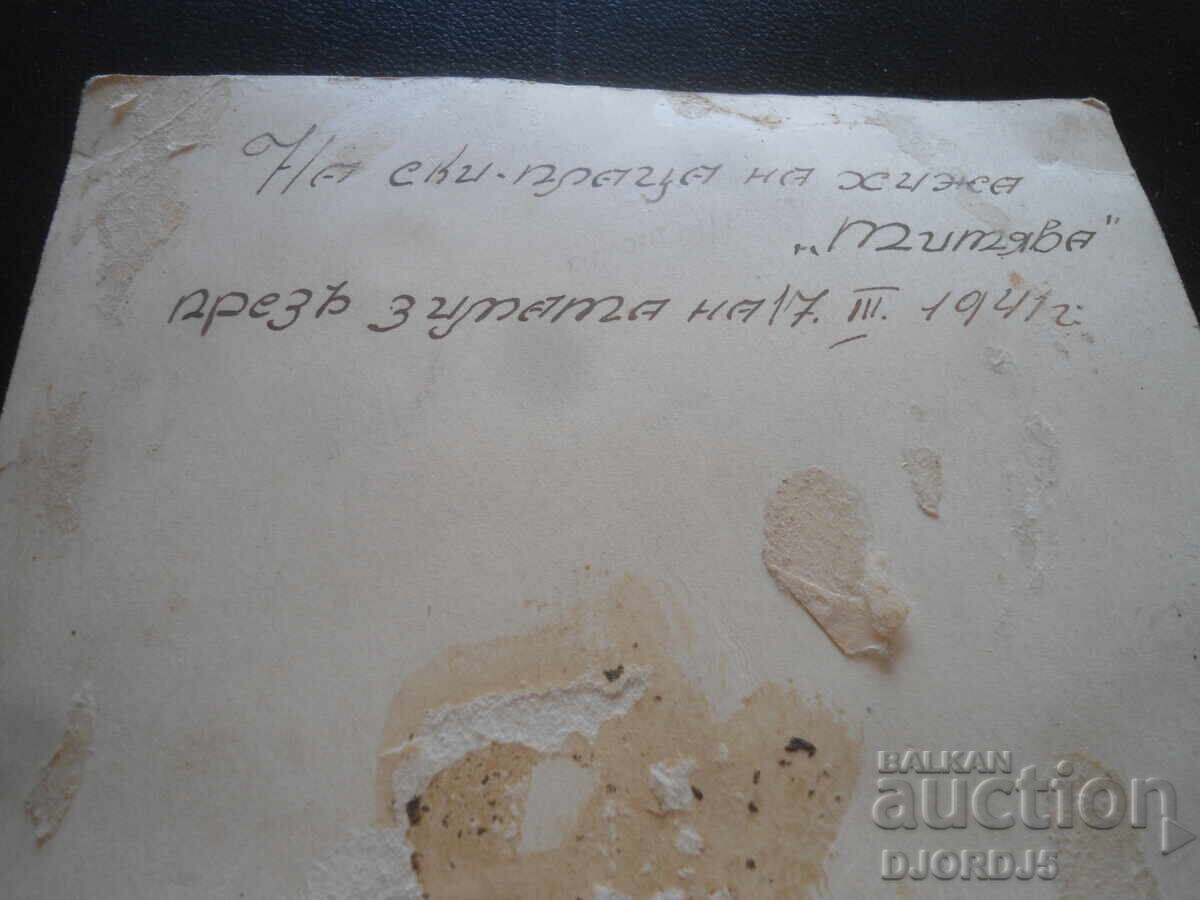 На ски-праца на хижа
„Титява"
презъ зимата на 17. III. 1941 г.
BALKAN
auction
DJORDJ5